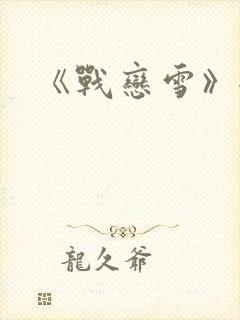 《戰戀雪》
龍久爺